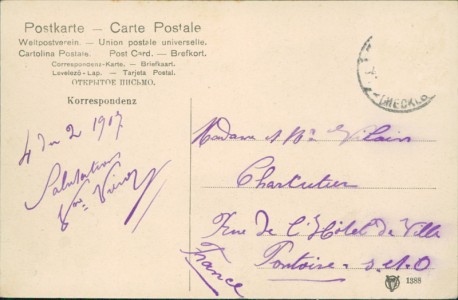 Postkarte — Carte Postale
Weltpostverein. — Union postale universelle.
Cartolina Postale. — Post Card. — Brefkort.
Correspondenz-Karte. — Briefkaart.
Levelező-Lap. — Tarjeta Postal.
ОТКРЫТОЕ ПИСЬМО.
Korrespondenz
4 2 1907
Salutations
Madame & Vilain
Charcutier
rue de l'Hôtel de Ville
Pontoise - S.et.O
France
1388